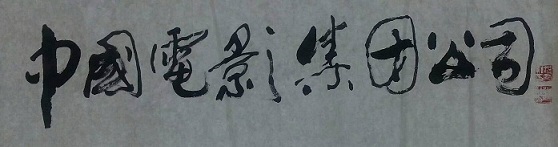 中國電影集团公司